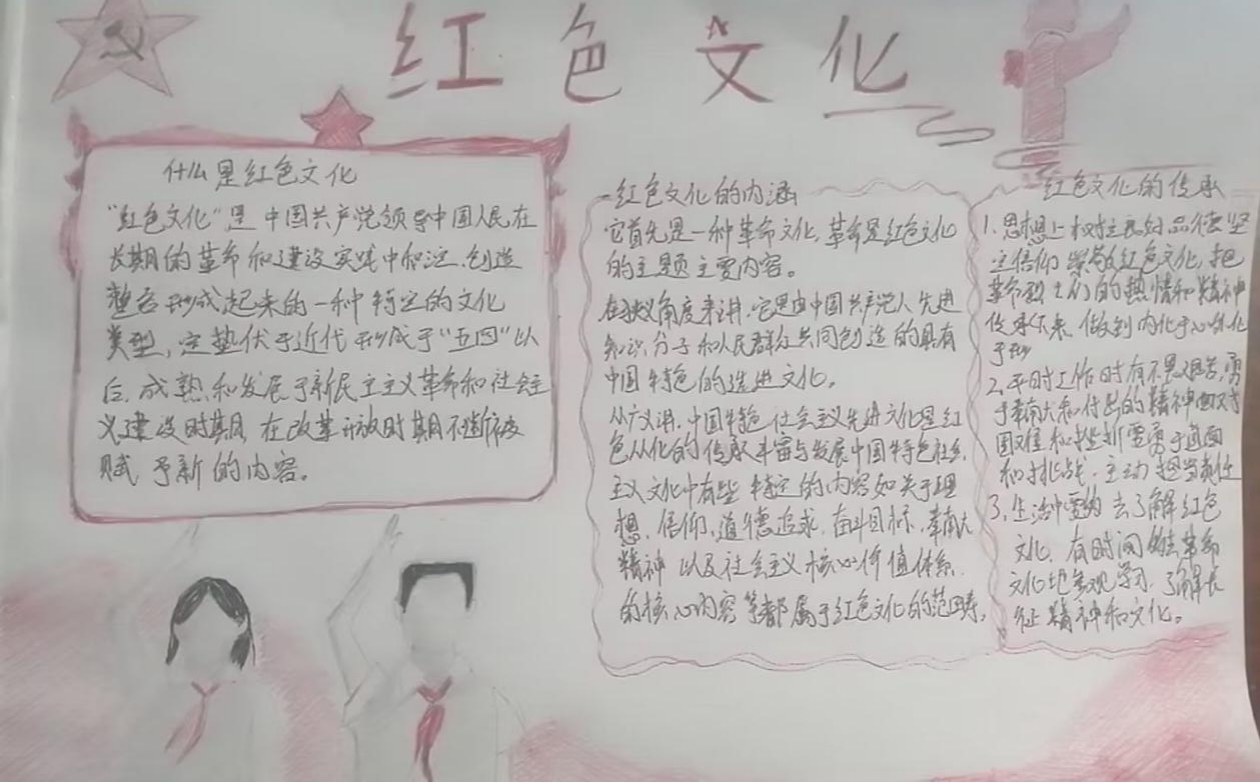 红色文化
什么是红色文化
"红色文化"是中国共产党领导中国人民在
长期的革命和建设实践中积淀、创造
整合形成起来的一种特定的文化
类型,它垫伏于近代形成于"五四"以
后,成熟和发展于新民主主义革命和社会主
义建设时期,在改革开放时期不断被
赋予新的内容。
红色文化的内涵
它首先是一种革命文化,革命是红色文化
的主题主要内容。
在狭义角度来讲,它是由中国共产党人先进
知识分子和人民群众共同创造的具有
中国特色的先进文化。
从广义讲,中国特色社会主义先进文化是红
色文化的传承丰富与发展中国特色社会
主义文化中有些特定的内容如关于理
想、信仰、道德追求、奋斗目标、奉献
精神以及社会主义核心价值体系
的核心内容等都属于红色文化的范畴。
红色文化的传承
1、思想上树立良好品德坚
定信仰 红色文化,把
革命烈士们的热情和精神
传承下来,做到内化于心外化
于形
2、平时工作时有不畏艰苦,勇
于奉献和付出的精神面对
困难和挫折要勇于直面
和挑战,主动担当责任
3、生活中要 去了解红色
文化,有时间 去革命
文化地参观学习,了解长
征精神和文化。